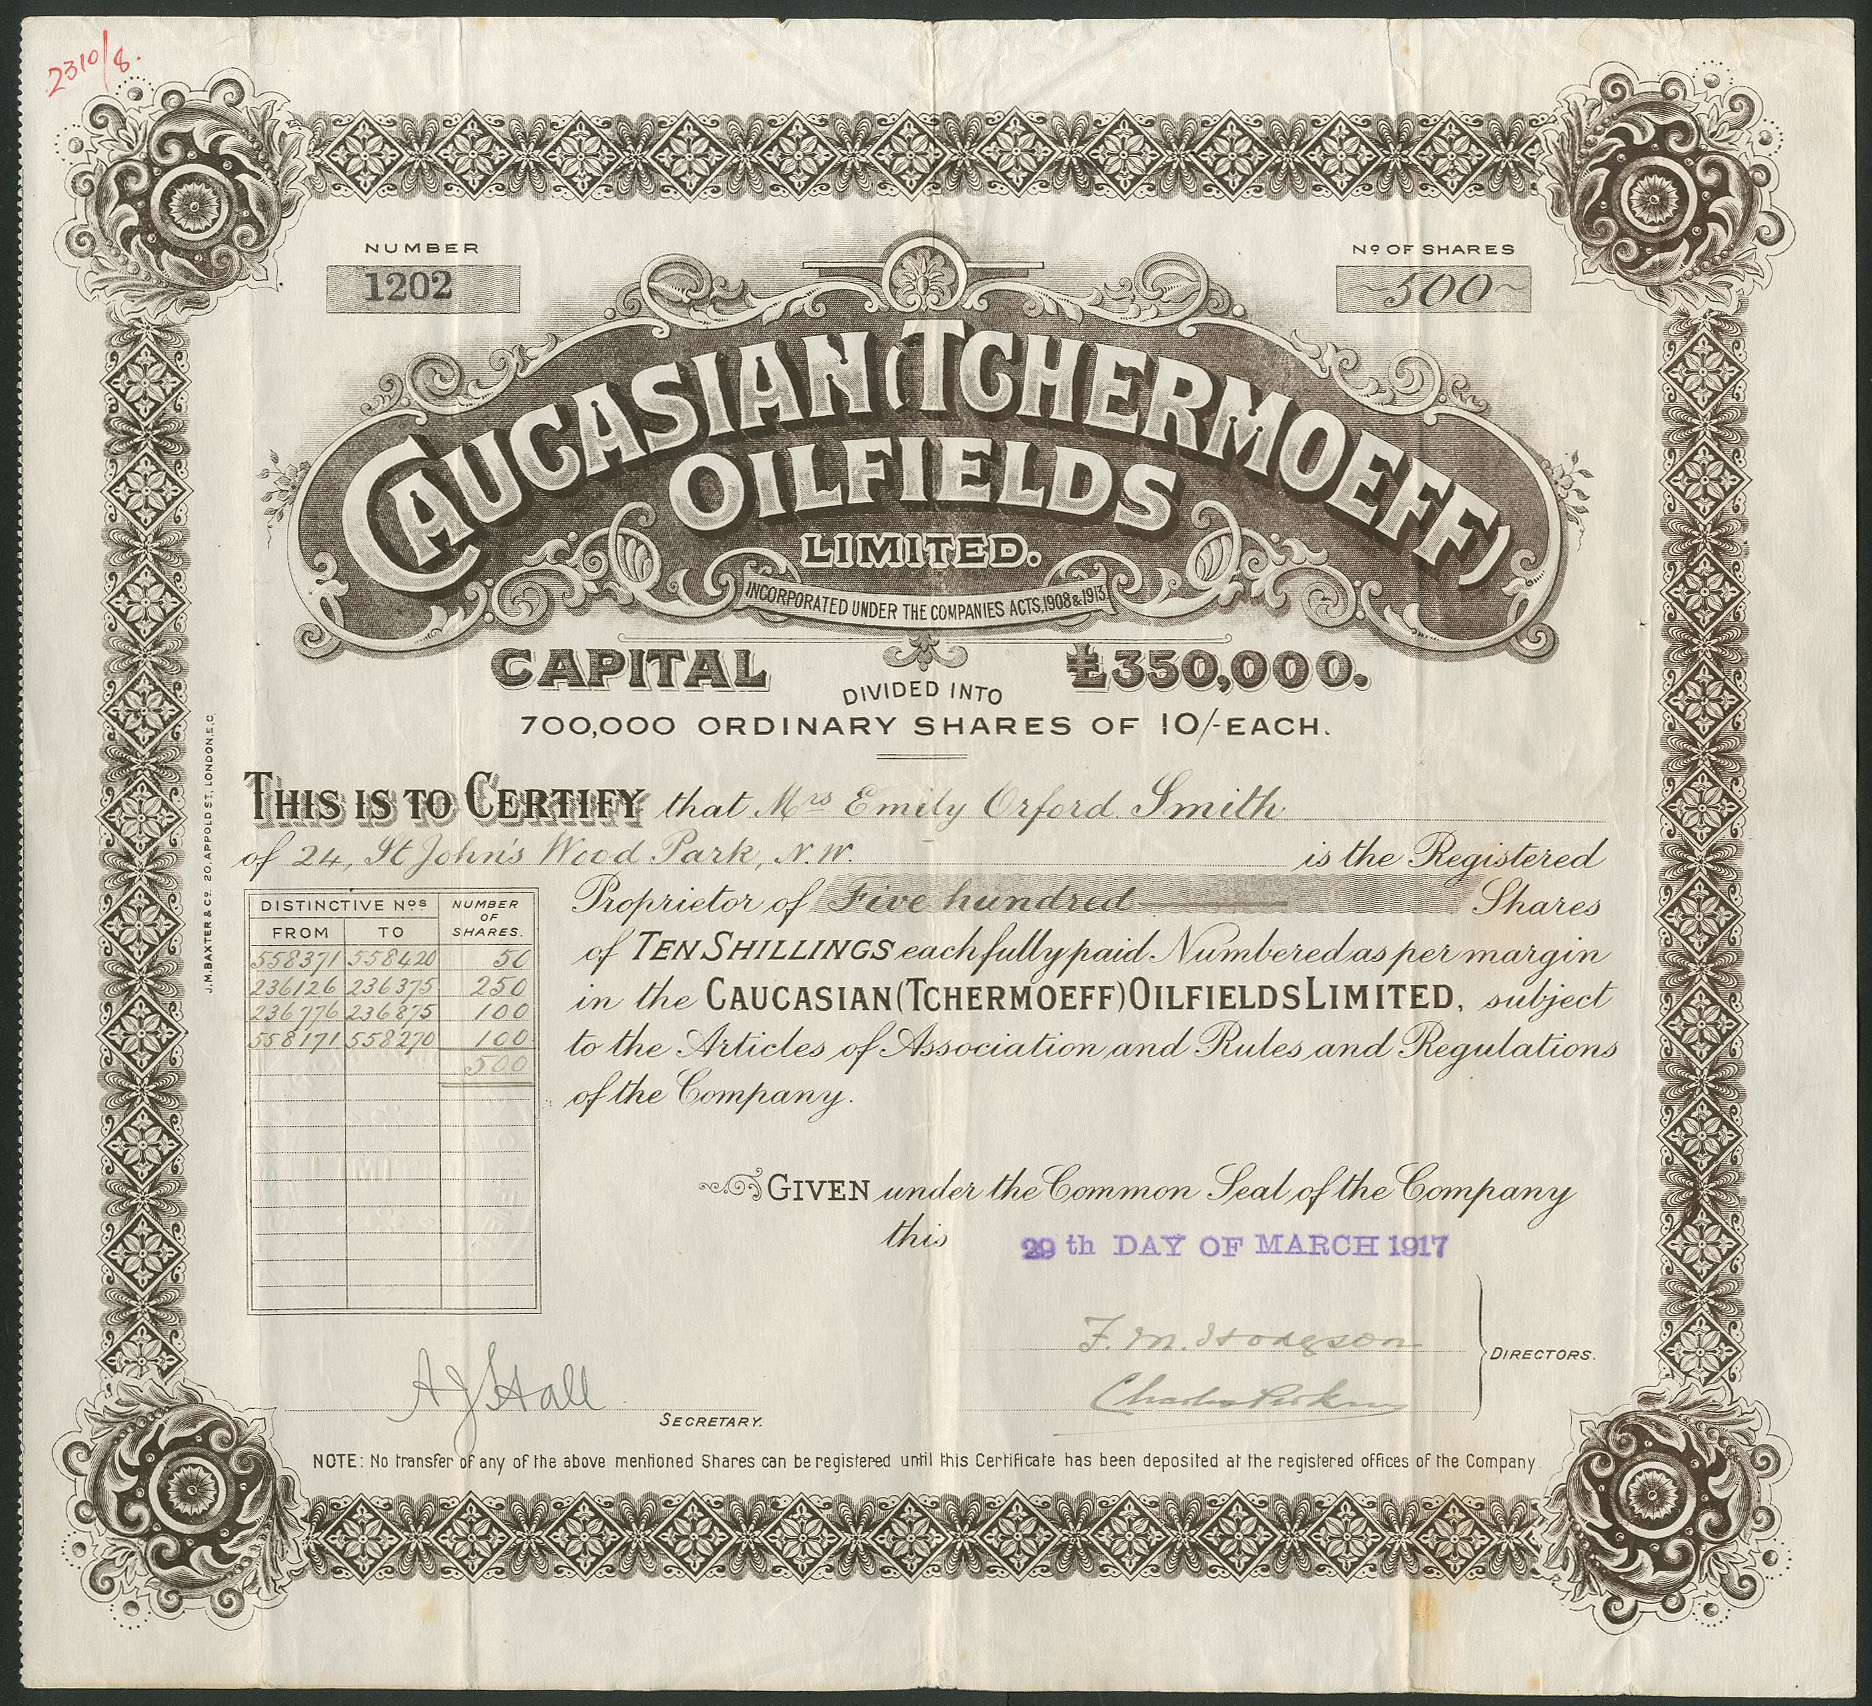 2310/8.
NUMBER
1202
Nº OF SHARES
~500~
CAUCASIAN (TCHERMOEFF)
OILFIELDS
LIMITED.
INCORPORATED UNDER THE COMPANIES ACTS, 1908 & 1913.
CAPITAL £350,000.
DIVIDED INTO
700,000 ORDINARY SHARES OF 10/- EACH.
THIS IS TO CERTIFY that Mrs Emily Orford Smith
of 24, St John's Wood Park, N.W. is the Registered
Proprietor of Five hundred Shares
of TEN SHILLINGS each fully paid Numbered as per margin
in the CAUCASIAN (TCHERMOEFF) OILFIELDS LIMITED, subject
to the Articles of Association and Rules and Regulations
of the Company.
DISTINCTIVE Nos NUMBER OF SHARES.
FROM TO
558371 558420 50
236126 236375 250
236776 236875 100
558171 558270 100
500
GIVEN under the Common Seal of the Company
this 29th DAY OF MARCH 1917
F. M. Hodgson
Charles Perkins
DIRECTORS.
A J Hall
SECRETARY.
NOTE: No transfer of any of the above mentioned Shares can be registered until this Certificate has been deposited at the registered offices of the Company
J.M. BAXTER & Cº. 20, APPOLD ST., LONDON, E.C.